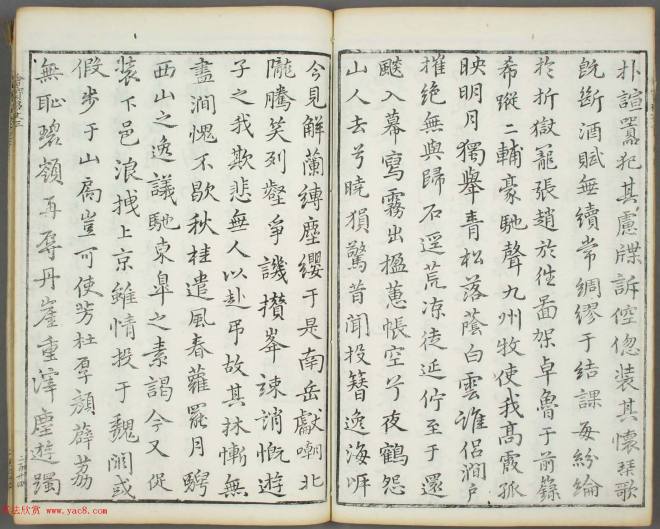 朴諠嚣犯其慮牒訴倥偬装其懷琴歌
既斷酒賦無續常綢繆于結課每紛綸
於折獄籠張趙於往啚架卓魯于前籙
希蹤三輔豪馳聲九州牧使我高霞孤
映明月獨舉青松落蔭白雲誰侣澗户
摧絶無與歸石逕荒凉徒延佇至于還
飈入幕寫霧出楹蕙帳空兮夜鶴怨
山人去兮曉猨驚昔聞投簪逸海岸
今見解蘭縛塵纓于是南岳獻嘲北
隴騰笑列壑爭譏攅峯竦誚慨遊
子之我欺悲無人以赴弔故其林慚無
盡澗愧不歇秋桂遣風春蘿罷月騁
西山之逸議馳東臯之素謁今又促
装下邑浪拽上京雖情投于魏闕或
假步于山扃豈可使芳杜厚顔薜荔
無恥碧嶺再辱丹崖重滓塵遊躅
www.yac8.com